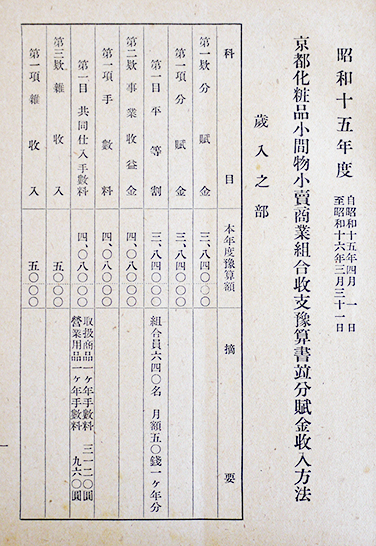 昭和十五年度
自昭和十五年四月一日
至昭和十六年三月三十一日
京都化粧品小間物小賣商業組合收支豫算書竝分賦金收入方法
歲入之部
科目 本年度豫算額 摘要
第一欵分賦金 三、八四〇〇〇
第一項分賦金 三、八四〇〇〇
第一目平等割 三、八四〇〇〇 組合員六四〇名 月額五〇錢一ヶ年分
第二欵事業收益金 四、〇八〇〇〇
第一項手數料 四、〇八〇〇〇
第一目共同仕入手數料 四、〇八〇〇〇 取扱商品一ヶ年手數料 三一二〇圓
營業用品一ヶ年手數料 九六〇圓
第三欵雜收入 五〇〇〇
第一項雜收入 五〇〇〇